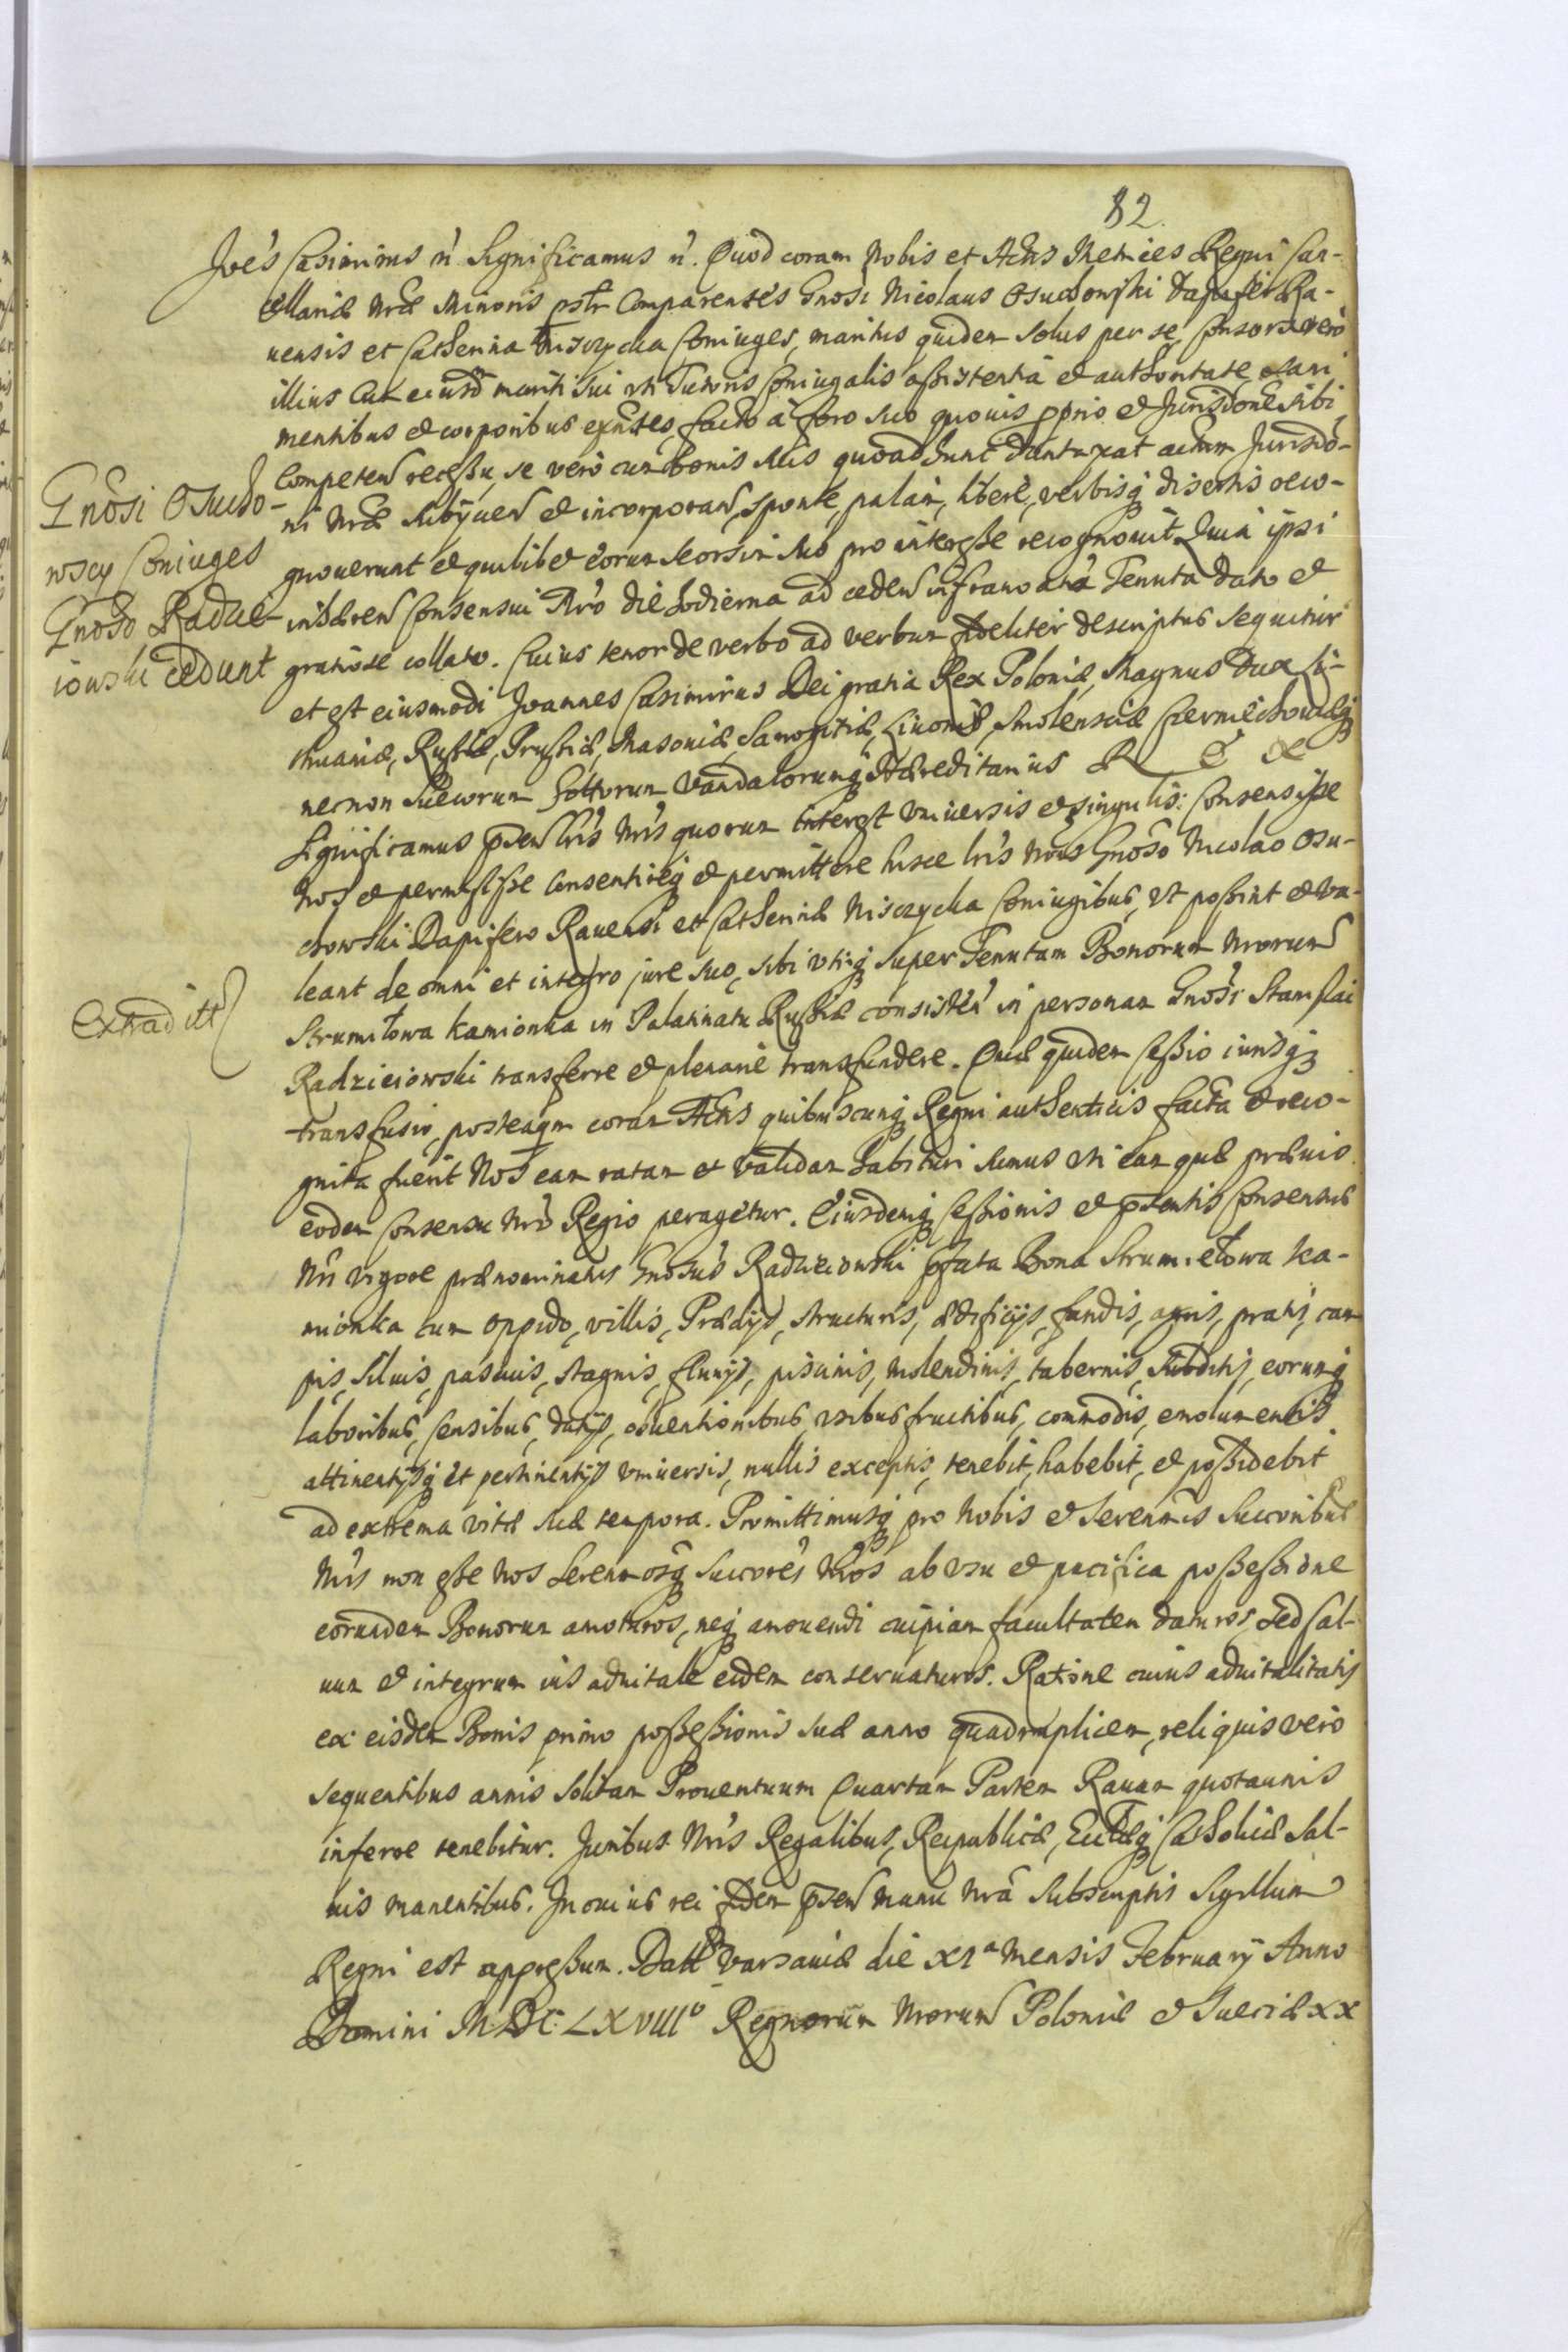 82.
Joēs Casimirus n̄ Significamus n̄. Quod coram Nobis et Actis Metrices Regni Can-
cellariæ Nræ Minoris pstr Comparentes Gnosi Nicolaus Osuchowski Dapifer Ra-
uensis et Catherina Niszczycka Coniuges, maritus quidem solus per se, Consors vero
illius cum eiusd mariti sui uti Tutoris Coniugalis assistentia et authoritate, sani
mentibus et corporibus exntes, facto à foro suo quouis pprio et Jurisdone sibi
Competen recessu, se vero cum bonis suis quoad hunc duntaxat actum Jurisdo-
ni Nræ subijcien et incorporan, sponte, palam, liberè, verbisq disertis reco-
gnouerunt et quilibet eorum seorsim suo pro interesse recognouit Quia ipsi
inhæren Consensui Nro die hodierna ad ceden infranoata Tenuta dato et
gratiose collato. Cuius tenor de verbo ad verbum fideliter descriptus sequitur
et est eiusmodi Joannes Casimirus Dei gratia Rex Poloniæ, Magnus Dux Li-
thuaniæ, Russiæ, Prussiæ, Masouiæ, Samogitiæ, Liuoniæ, Smolensciæ Czerniechouiæq
necnon Suecorum Gottorum Vandalorumq Hæreditarius R E X
Significamus psen lris Nris quorum interest Vniuersis et singulis: Consensisse
Nos et permisisse Consentireq et permittere hisce lris Nris Gnoso Nicolao Osu-
chowski Dapifero Rauensi et Catherinæ Niszczycka Coniugibus, ut possint et va-
leant de omni et integro jure suo, sibi utriq super Tenutam Bonorum Nrorum
Strumiłowa Kamionka in Palatinatu Russiæ consisten in personam Gnosi Stanislai
Radzieiowski transferre et plenarie transfundere. Quæ quidem Cessio iurisq
transfusio, posteaqm coram Actis quibuscunq Regni authenticis facta et reco-
gnita fuerit Nos eam ratam et validam habituri sumus uti eam quæ præuio
eodem Consensu Nro Regio peragetur. Eiusdemq Cessionis et psentis Consensus
Nri vigore prænominatus Gnosus Radzieiowski pfata Bona Strumiełowa Ka-
mionka cum oppido, villis, Prædijs, structuris, ædificijs, fundis, agris, pratis, cam
pis, siluis, pascuis, stagnis, fluuijs, piscinis, molendinis, tabernis, Subditis, eorumq
laboribus, Censibus, datijs, obuentionibus, usibus fructibus, commodis, emolumentis
attinentijsq et pertinentijs vniuersis, nullis exceptis, tenebit, habebit, et possidebit
ad extrema vitæ suæ tempora. Promittimusq pro Nobis et Serenmis Succoribus
Nris non esse Nos Serenmosq Succores Nros ab usu et pacifica possessione
eorundem Bonorum amoturos, neq amouendi cuipiam facultatem daturos, sed sal-
uum et integrum ius aduitale eidem conseruaturos. Ratione cuius aduitalitatis
ex eisdem Bonis primo possessionis suæ anno quadruplicem, reliquis vero
sequentibus annis solitam Prouentuum Quartam Partem Rauam quotannis
inferre tenebitur. Juribus Nris Regalibus, Reipublicæ, Ecclæq Catholicæ sal-
uis manentibus. In cuius rei fidem psen manu Nra subscriptis Sigillum
Regni est appressum. Datt Varsauiæ die XIa Mensis February Anno
Domini M.DC.LXVIIIo Regnorum Nrorum Poloniæ et Sueciæ XX
Gnosi Osucho-
wscy Coniuges
Gnoso Radzie-
iowski cedunt
Extraditt